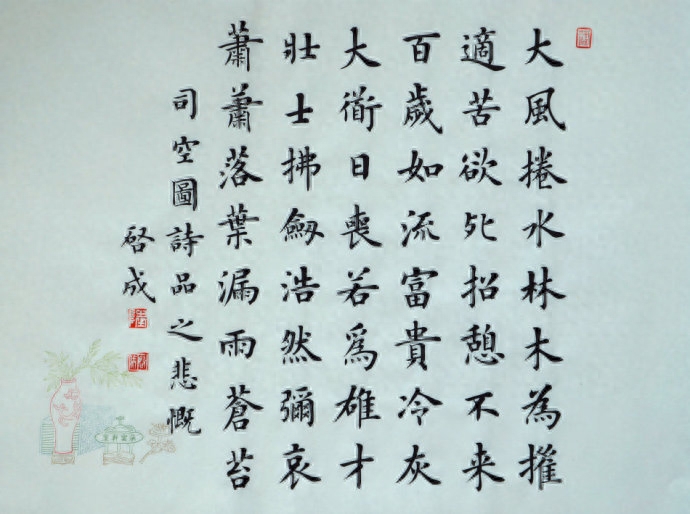 大風捲水林木為摧
適苦欲死招憩不来
百歲如流富貴冷灰
大衜日喪若爲雄才
壯士拂劔浩然彌哀
蕭蕭落葉漏雨蒼苔
司空圖詩品之悲慨
啓成